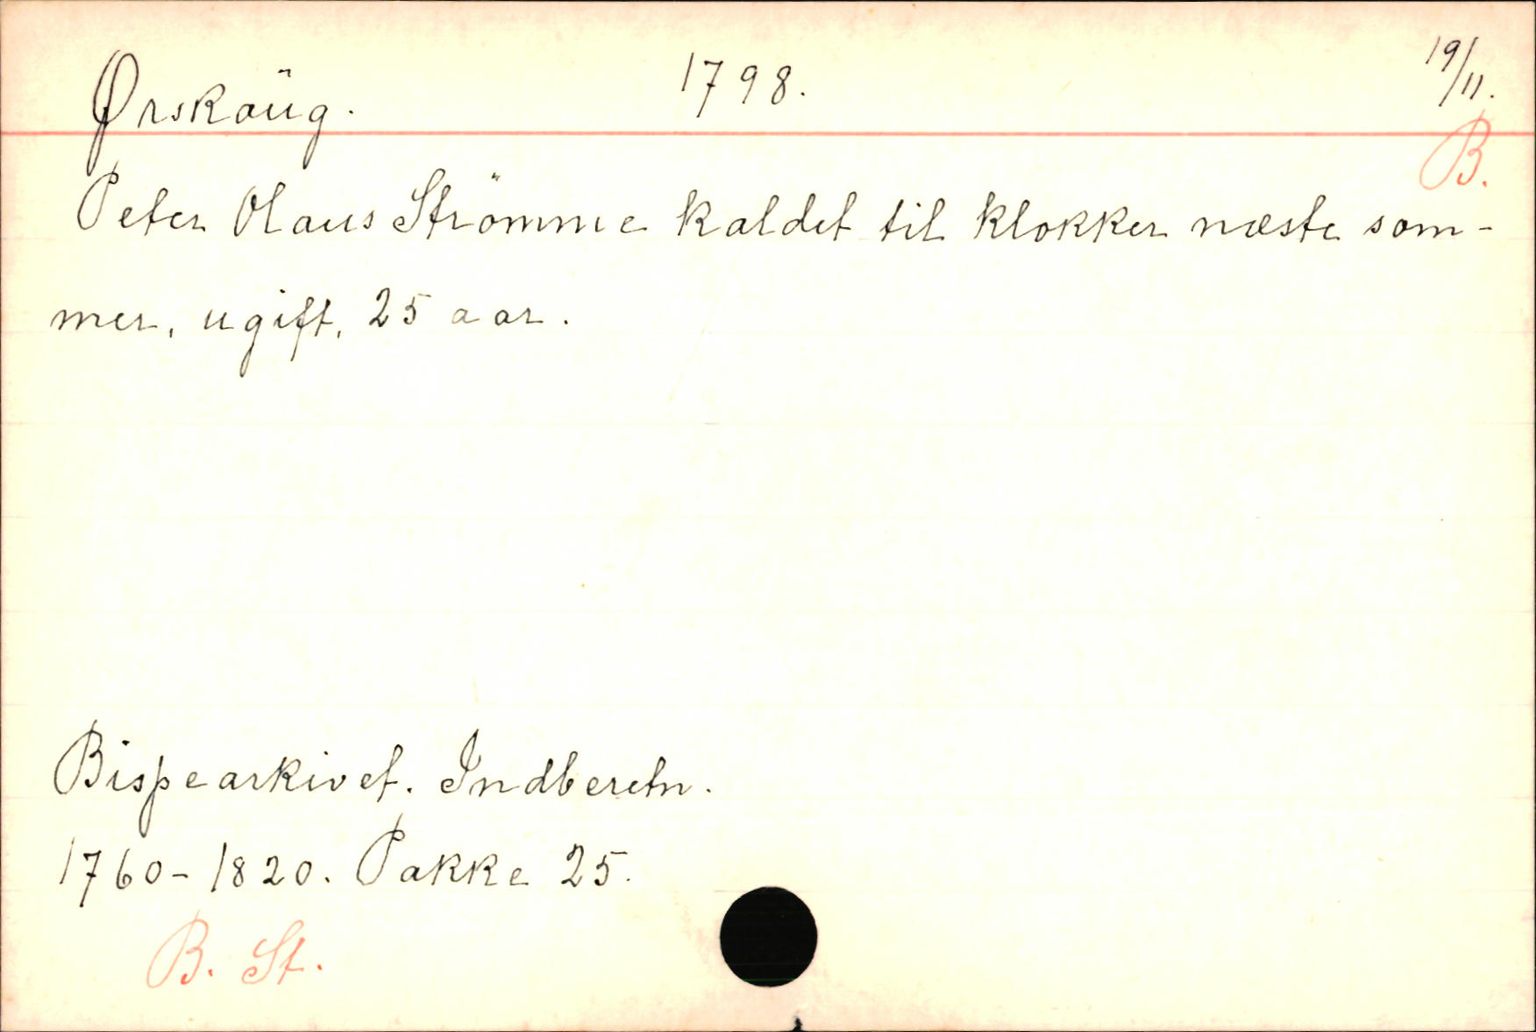 Ørskaüg. 1798. 19/11.
B.
Peter Olaus Strömme kaldet til klokker næste som-
mer, ugift, 25 aar.
Bispearkivet. Indberetn.
1760-1820. Pakke 25.
B. St.